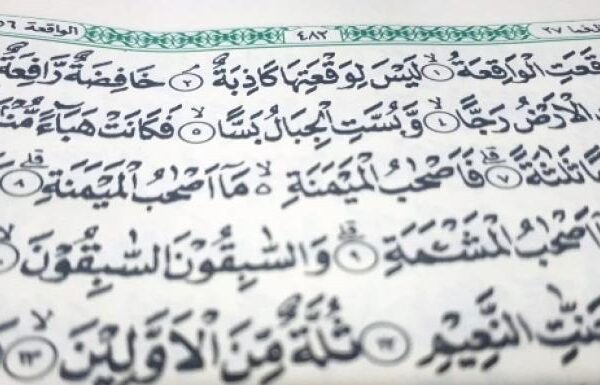 الواقعة ٥٦ ٤٨٣ ٢٧
الْوَاقِعَةُ ۙ ١ لَيْسَ لِوَقْعَتِهَا كَاذِبَةٌ ۘ ٢ خَافِضَةٌ رَّافِعَةٌ
الْاَرْضُ رَجًّا ۙ ٤ وَّبُسَّتِ الْجِبَالُ بَسًّا ۙ ٥ فَكَانَتْ هَبَآءً
ثَلٰثَةً ۗ ٧ فَاَصْحٰبُ الْمَيْمَنَةِ ۙ مَآ اَصْحٰبُ الْمَيْمَنَةِ ۗ ٨
اَصْحٰبُ الْمَشْـَٔمَةِ ۗ ٩ وَالسّٰبِقُوْنَ السّٰبِقُوْنَ ۙ
النَّعِيْمِ ١٢ ثُلَّةٌ مِّنَ الْاَوَّلِيْنَ ۙ ١٣